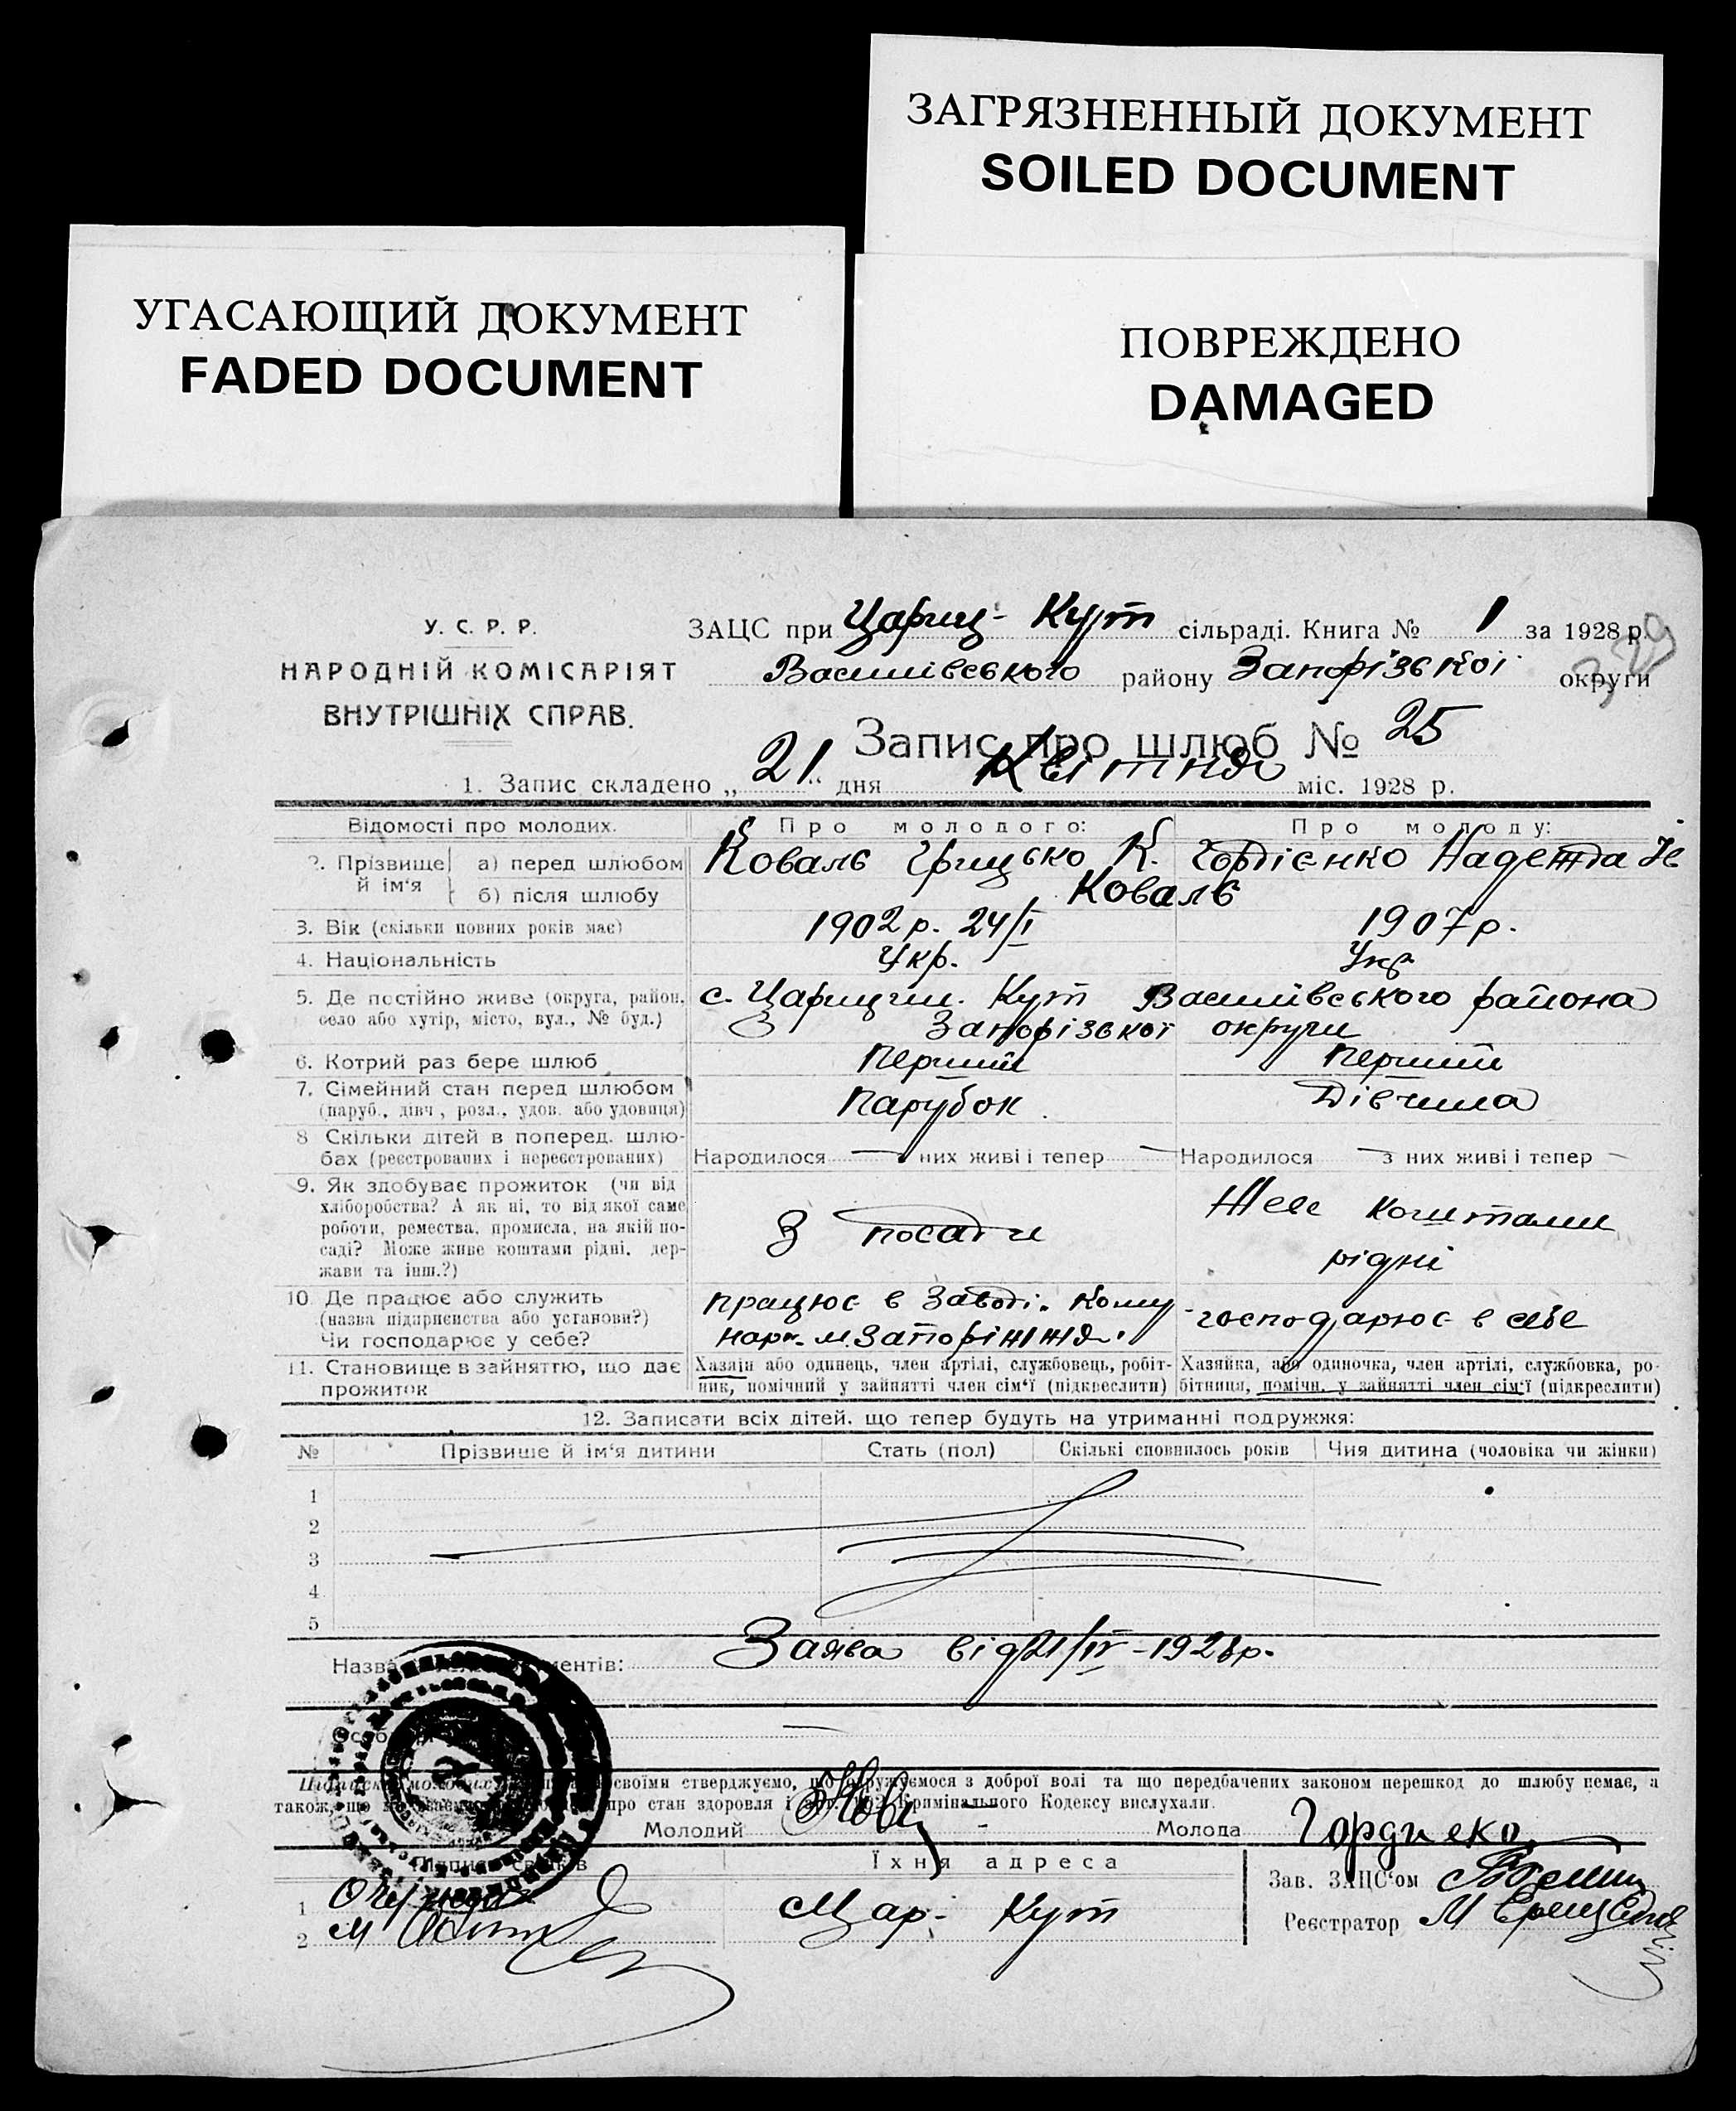 ЗАГРЯЗНЕННЫЙ ДОКУМЕНТ
SOILED DOCUMENT
УГАСАЮЩИЙ ДОКУМЕНТ
FADED DOCUMENT
ПОВРЕЖДЕНО
DAMAGED
У. С. Р. Р.
НАРОДНІЙ КОМІСАРІЯТ
ВНУТРІШНІХ СПРАВ.
ЗАЦС при Цариц- Кут сільраді. Книга № 1 за 1928 р.
Василівського району Запорізької округи
Запис про шлюб № 25
1. Запис складено „ 21 " дня Квітня міс. 1928 р.
Відомості про молодих. Про молодого: Про молоду:
2. Прізвище й ім'я а) перед шлюбом Коваль Грицько К. Гордієнко Надежда
б) після шлюбу Коваль
3. Вік (скільки повних років має) 1902 р. 24/I 1907 р.
4. Національність Укр. Укр
5. Де постійно живе (округа, район, село або хутір, місто, вул., № буд.) с. Царицин. Кут Василівського района
Запорізької округи
6. Котрий раз бере шлюб Перший Перший
7. Сімейний стан перед шлюбом Парубок Дівчина
(паруб., дівч., розл., удов. або удовиця)
8 Скільки дітей в поперед. шлю-
бах (реєстрованих і нереєстрованих) Народилося — них живі і тепер — Народилося — з них живі і тепер —
9. Як здобуває прожиток (чи від
хліборобства? А як ні, то від якої саме
роботи, ремества, промисла, на якій по-
саді? Може живе коштами рідні, дер-
жави та інш.?)
З посади
Живе коштами
рідні
10 Де працює або служить
(назва підприємства або установи?)
Чи господарює у себе?
працює в Заводі. Кому
нар. м. Запоріжжя.
господарює в себе
11. Становище в зайняттю, що дає
прожиток
Хазяїн або одинець, член артілі, службовець, робіт-
ник, помічний у зайнятті член сім'ї (підкреслити)
Хазяйка, або одиночка, член артілі, службовка, ро-
бітниця, помічн. у зайнятті член сім'ї (підкреслити)
12. Записати всіх дітей, що тепер будуть на утриманні подружжя:
№ Прізвище й ім'я дитини Стать (пол) Скількі сповнилось років Чия дитина (чоловіка чи жінки)
1
2
3
4
5
Назва ментів: Заява від 21/IV-1928р.
Особ
Підписи молодих: своїми стверджуємо, що одружуємося з доброї волі та що передбачених законом перешкод до шлюбу немає, а
також, що про стан здоровля і Кримінального Кодексу вислухали.
Молодий Молода Гордиеко
Підписи свідків Їхня адреса Зав. ЗАЦС'ом
1
2
Цар- Кут
Реєстратор М